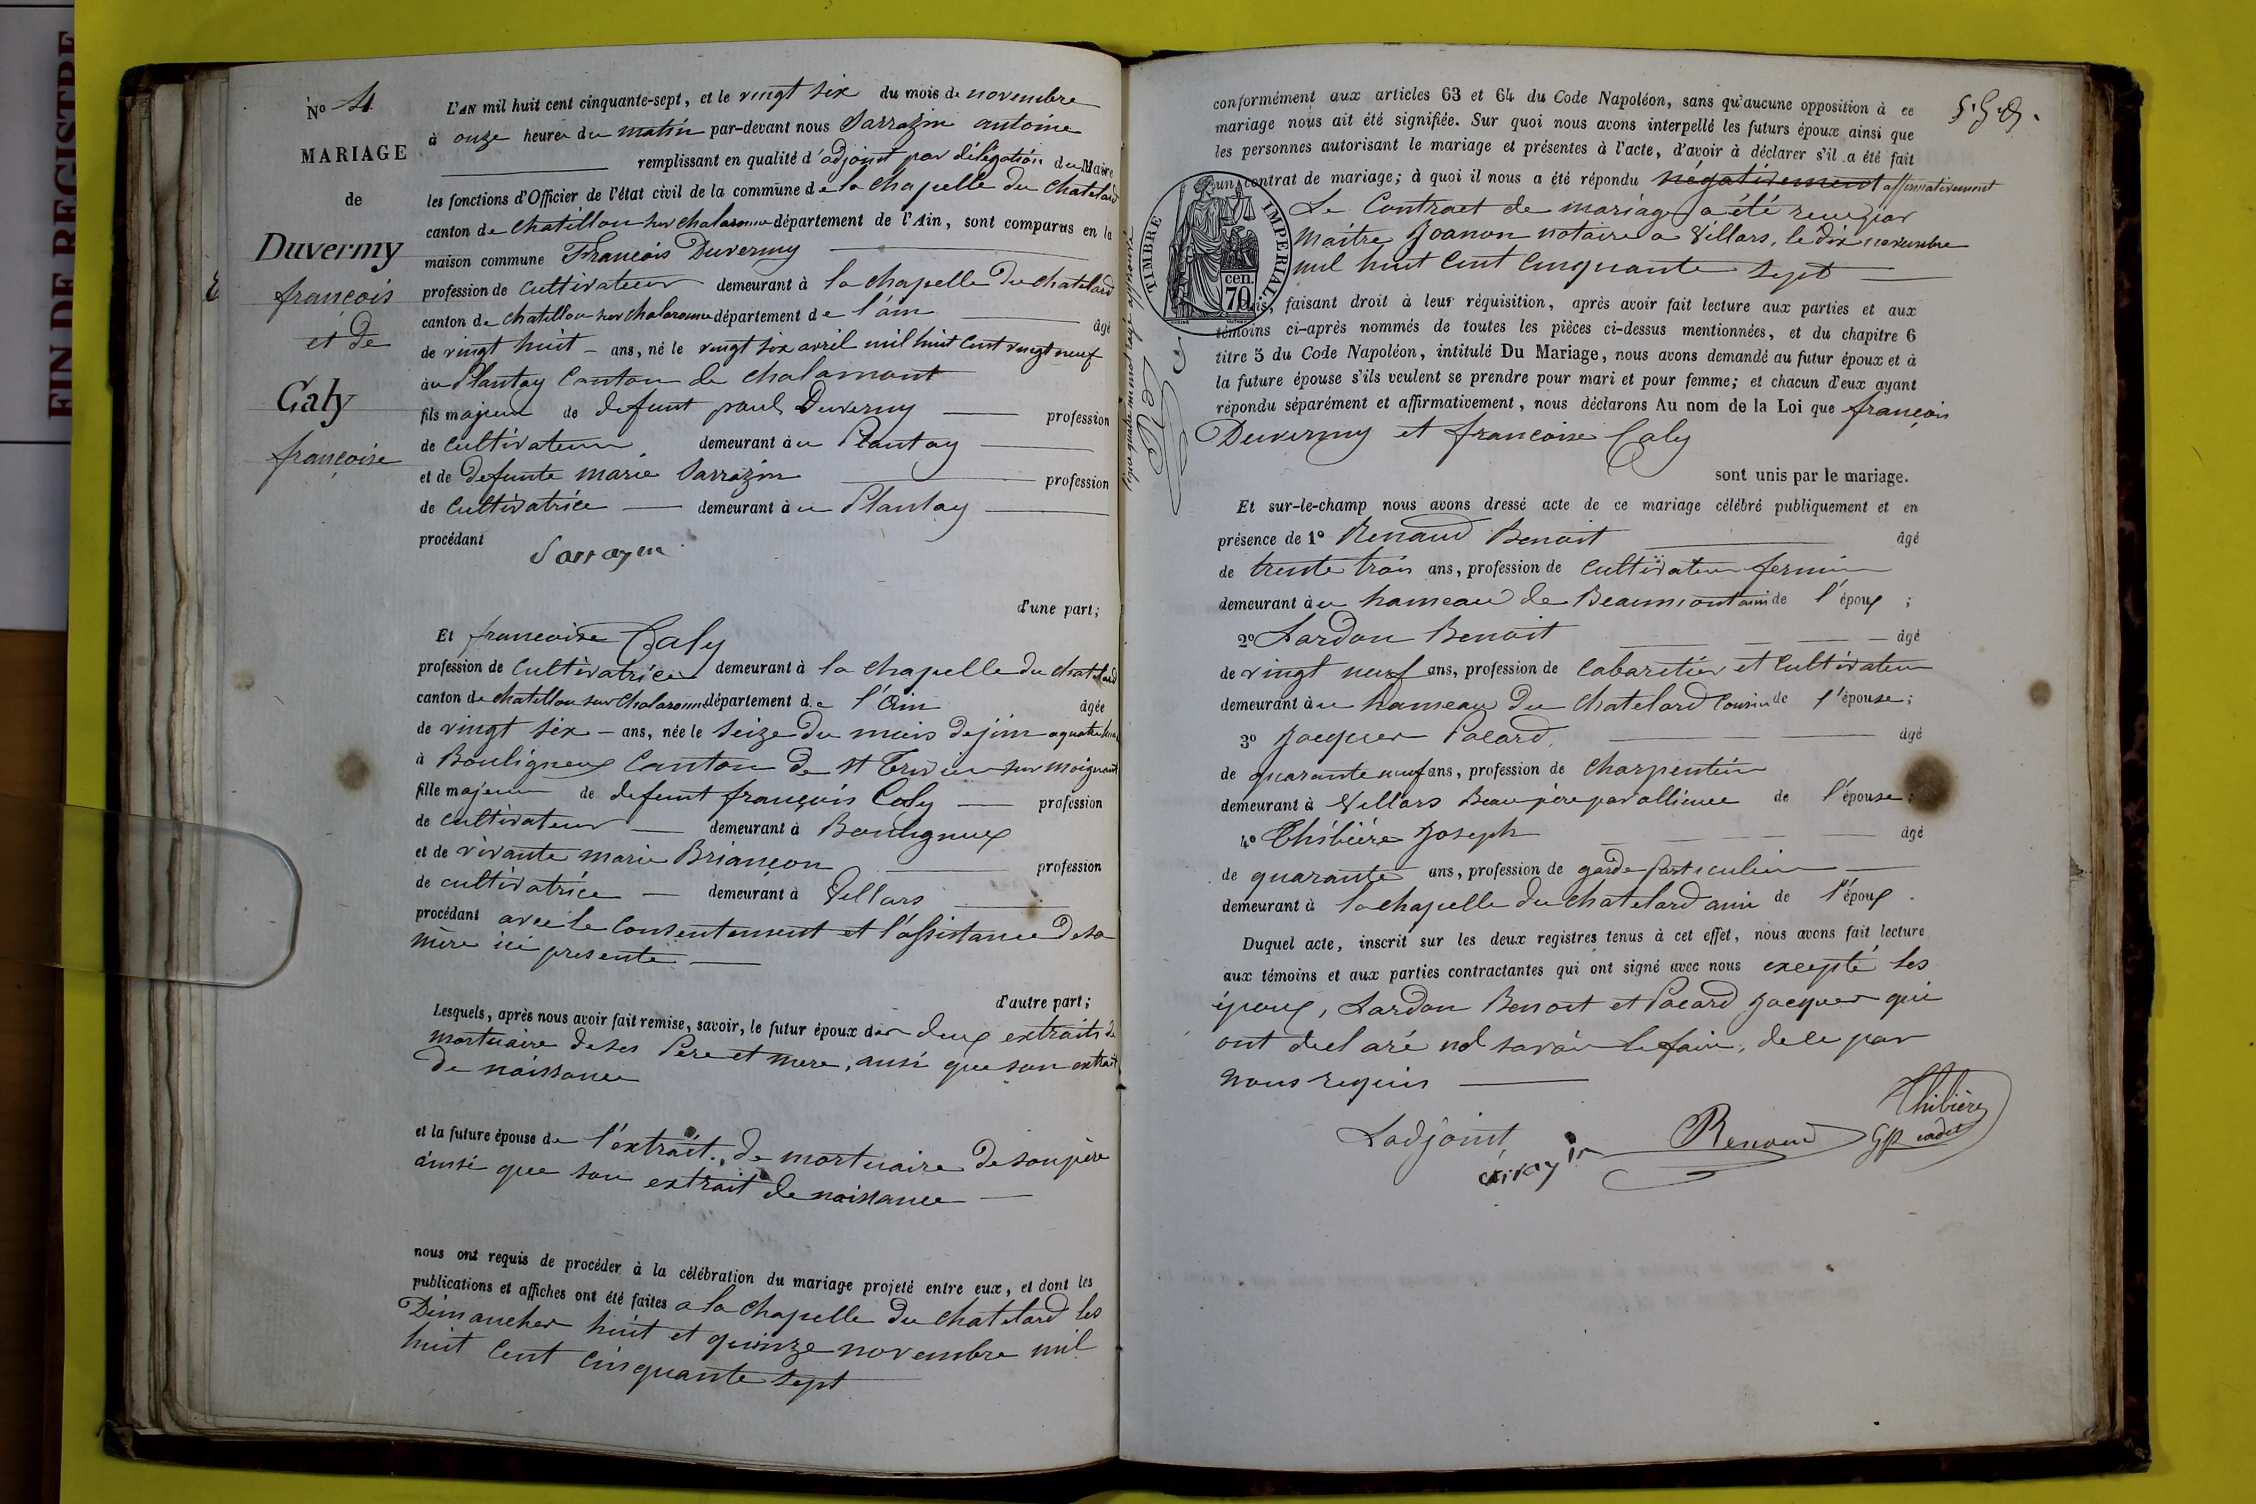 FIN DE REGISTRE
N° 4
MARIAGE
de
Duvermy
françois
et de
Caly
françoise
L'AN mil huit cent cinquante-sept, et le vingt six du mois de novembre
à onze heures du matin par-devant nous Sarrazin antoine
remplissant en qualité d'adjoint par délégation du Maire
les fonctions d'Officier de l'état civil de la commune de la chapelle du chatelard
canton de chatillon sur chalaronne département de l'Ain, sont comparus en la
maison commune François Duvermy
profession de cultivateur demeurant à la chapelle du chatelard
canton de chatillon sur chalaronne département de l'ain âgé
de vingt huit ans, né le vingt six avril mil huit cent vingt neuf
au Plantay Canton de chalamont
fils majeur de defunt paul Duvermy profession
de cultivateur demeurant à u Plantay
et de defunte marie Sarrazin profession
de cultivatrice demeurant à u Plantay
procédant
Sarrazin
d'une part;
Et francoise Caly
profession de cultivatrice demeurant à la chapelle du chatelard
canton de chatillon sur chalaronne département de l'Ain âgée
de vingt six ans, née le seize du mois de juin
à Bouligneux Canton de st Trivier sur moignant
fille majeure de defunt françois Caly profession
de cultivateur demeurant à Bouligneux
et de vivante marie Briançon profession
de cultivatrice demeurant à Villars
procédant avec le consentement et l'assistance de sa
mère ici presente
d'autre part;
Lesquels, après nous avoir fait remise, savoir, le futur époux des deux extraits de
mortuaire de ses Père et mere, ainsi que son extrait
de naissance
et la future épouse de l'extrait, de mortuaire de son père
ainsi que son extrait de naissance
nous ont requis de procéder à la célébration du mariage projeté entre eux, et dont les
publications et affiches ont été faites a la chapelle du chatelard les
Dimanches huit et quinze novembre mil
huit cent cinquante sept
conformément aux articles 63 et 64 du Code Napoléon, sans qu'aucune opposition à ce
mariage nous ait été signifiée. Sur quoi nous avons interpellé les futurs époux ainsi que
les personnes autorisant le mariage et présentes à l'acte, d'avoir à déclarer s'il a été fait
un contrat de mariage; à quoi il nous a été répondu négativement affirmativement
Le Contract de mariage a été reçu par
Maitre Joanon notaire a Villars, le dix novembre
mil huit cent cinquante sept
TIMBRE IMPERIAL
70 cen.
faisant droit à leur réquisition, après avoir fait lecture aux parties et aux
témoins ci-après nommés de toutes les pièces ci-dessus mentionnées, et du chapitre 6
titre 5 du Code Napoléon, intitulé Du Mariage, nous avons demandé au futur époux et à
la future épouse s'ils veulent se prendre pour mari et pour femme; et chacun d'eux ayant
répondu séparément et affirmativement, nous déclarons Au nom de la Loi que françois
Duvermy et francoise Caly
sont unis par le mariage.
Et sur-le-champ nous avons dressé acte de ce mariage célébré publiquement et en
présence de 1° Renaud Benoit âgé
de trente trois ans, profession de cultivateur fermier
demeurant à u hameau de Beaumont ami de l'époux;
2° Lardon Benoit âgé
de vingt neuf ans, profession de cabaretier et cultivateur
demeurant à u hameau du chatelard cousin de l'épouse;
3° Jacques Pacard âgé
de quarante neuf ans, profession de charpentier
demeurant à Villars Beau père par allience de l'épouse;
4° Thibière Joseph âgé
de quarante ans, profession de garde particulier
demeurant à la chapelle du chatelard ami de l'époux.
Duquel acte, inscrit sur les deux registres tenus à cet effet, nous avons fait lecture
aux témoins et aux parties contractantes qui ont signé avec nous excepté les
époux, Lardon Benoit et Pacard Jacques qui
ont declaré ne savoir le faire, de ce par
nous requis
Ladjoint
Renaud
Thibière